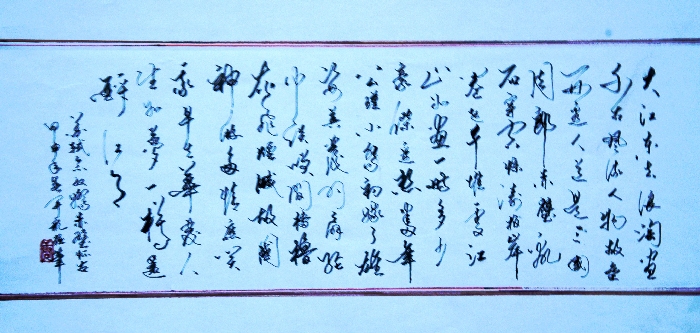 大江东去浪淘尽
千古风流人物故垒
西边人道是三国
周郎赤壁乱
石穿空惊涛拍岸
卷起千堆雪江
山如画一时多少
豪杰遥想当年
公瑾小乔初嫁了雄
姿英发羽扇纶
巾谈笑间樯橹
灰飞烟灭故国
神游多情应笑
我早生华发人
生如梦一樽还
酹江月
苏轼念奴娇赤壁怀古
甲申年